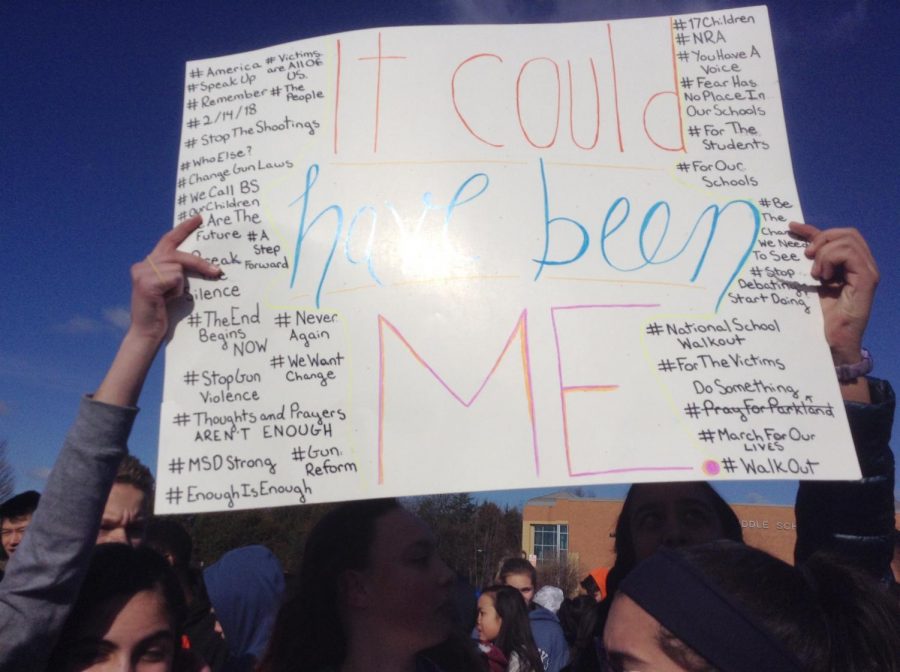 It could
have been
ME.
# America
# Speak Up
# Victims
are All Of
US.
# Remember
# The
People
# 2/14/18
# Stop The Shootings
# Who Else?
# Change Gun Laws
# We Call BS
# Our Children
Are The
Future
# A
Step
Forward
Silence
# The End
Begins
NOW
# Never
Again
# We Want
Change
# Stop Gun
Violence
# Thoughts and Prayers
AREN'T ENOUGH
# MSD Strong
# Gun
Reform
# Enough Is Enough
# 17 Children
# NRA
# You Have A
Voice
# Fear Has
No Place In
Our Schools
# For The
Students
# For Our
Schools
# Be
The
We Need
To See
# Stop
Debating,
Start Doing
# National School
Walkout
# For The Victims
Do Something
# Pray For Parkland
# March For Our
LIVES
# Walk Out
DDLE SCH